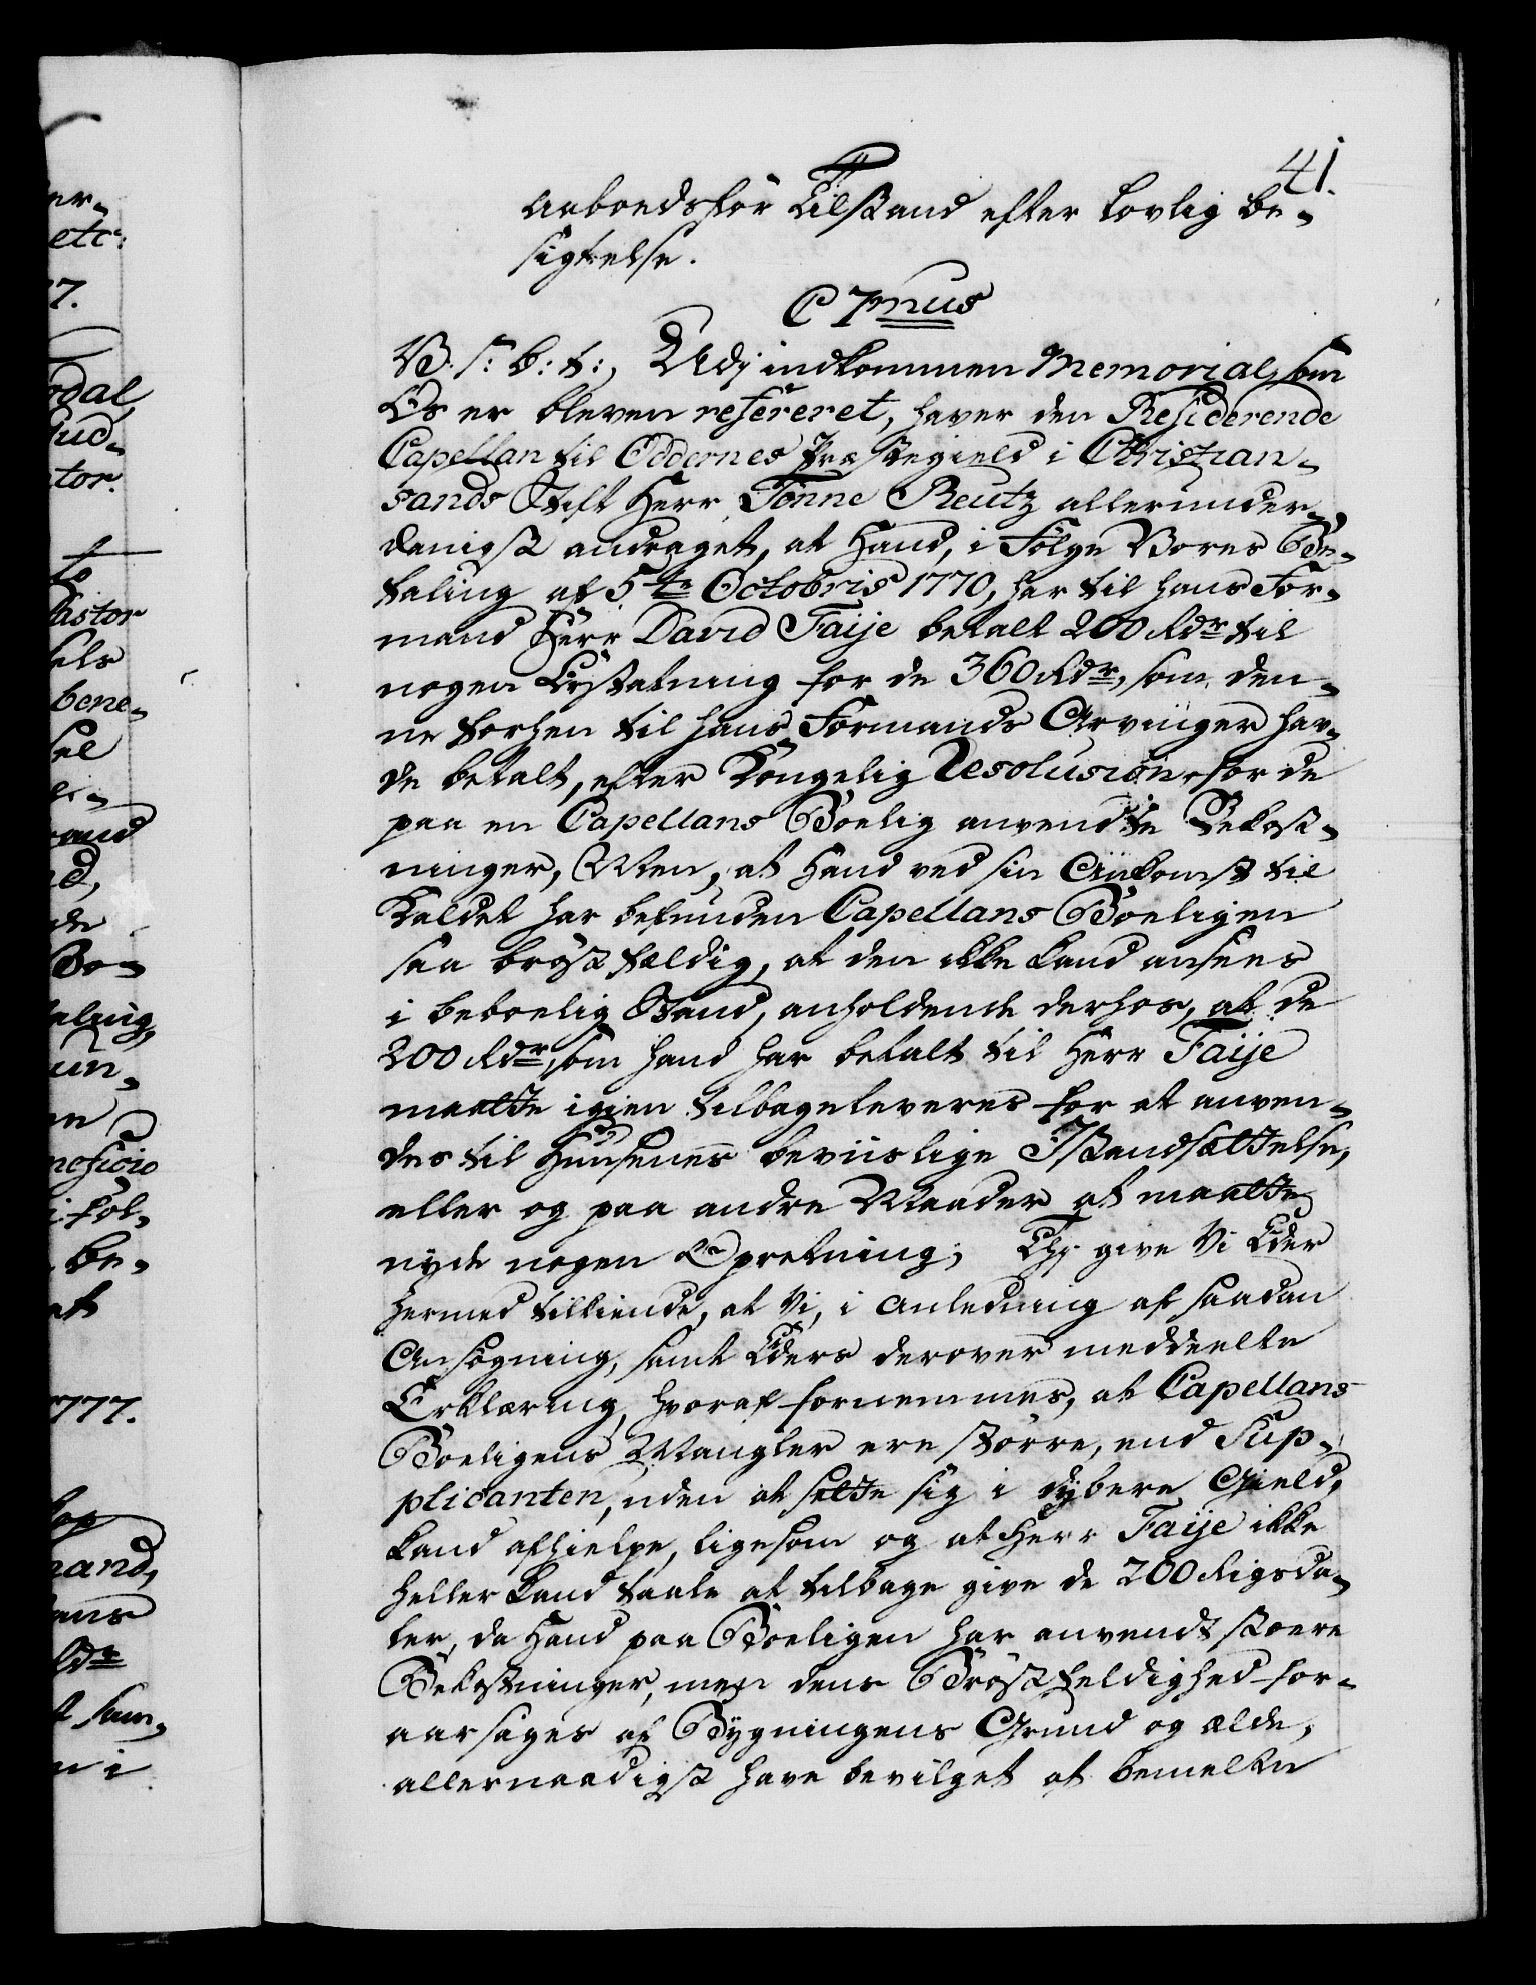 41.
aaboedsför Tilstand efter lovlig be-
sigtelse.
C 7mus
V. s: b: t:, Udj indkommen Memorial, som
Os er bleven refereret, haver den Residerende
Capellan til Oddernes Præstegield i Christian-
sands Stift Herr Tönne Reutz allerunder-
danigst andraget, at Hand, i Fölge Vores Be-
faling af 5te Octobris 1770, har til hans For-
mand Herr David Faije betalt 200 Rdr til
nogen Erstatning for de 360 Rdr, som den-
ne forhen til hans Formands Arvinger hav-
de betalt, efter Kongelig Resolusion, for de
paa en Capellans Boelig anvendte Bekost-
ninger, Men, at Hand ved sin Ankomst til
Kaldet har befunden Capellans Boeligen
saa bröst fældig, at den ikke kand ansees
i beboelig Stand, anholdende derhos, at de
200 Rdr, som hand har betalt til Herr Faije
maatte igien tilbageleveres for at anven-
des til Huusenes beviislige Istandsættelse,
eller og paa andre Maader at maatte
nyde nogen Opretning; Thj give Vi Eder
hermed tilkiende, at Vi, i Anledning af saadan
Ansögning, samt Eders derover meddeelte
Erklæring, hvoraf fornemmes, at Capellans
Boeligens Mangler ere större, end Sup-
plicanten, uden at sette sig i dybere Gield,
kand afhielpe, ligesom og at Herr Faije ikke
heller kand taale at tilbage give de 200 Rigsda-
ler, da Hand paa Boeligen har anvendt stoere
Bekostninger, men dens Bröstfeldighed for-
aarsages af Bygningens Grund og ælde,
allernaadigst have bevilget at bemelte